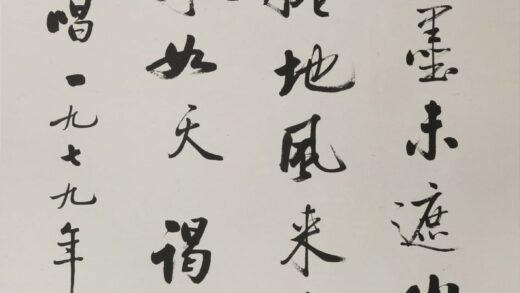 墨未遮
地風来
如天 謁
唱 一九七九年